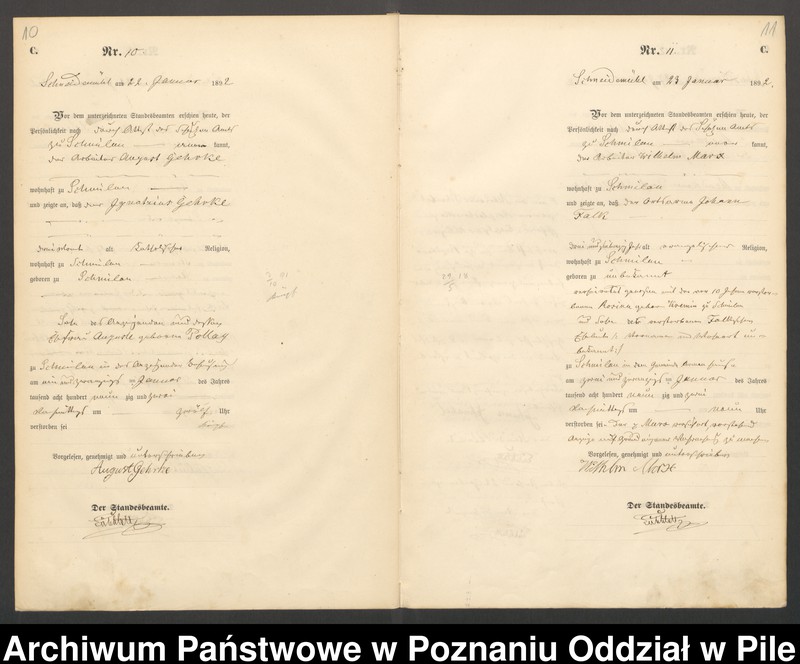 10
C. Nr. 10
Schneidemühl am 22. Januar 1892
Vor dem unterzeichneten Standesbeamten erschien heute, der
Persönlichkeit nach durch Attest des Schulzen Amts
zu Schmilau kannt,
der Arbeiter August Gehrke
wohnhaft zu Schmilau
und zeigte an, daß der Ignatzius Gehrke
alt katholischer Religion,
wohnhaft zu Schmilau
geboren zu Schmilau
Sohn des Anzeigenden und dessen
Ehefrau Auguste geborenen Pollatz
zu Schmilau in des Anzeigenden Behausung
am ein und zwanzigsten Januar des Jahres
tausend acht hundert neun zig und zwei
Nachmittags um zwölf Uhr
verstorben sei
Vorgelesen, genehmigt und unterschrieben
August Gehrke
Der Standesbeamte.
11
Nr. 11 C.
Schneidemühl am 23 Januar 1892.
Vor dem unterzeichneten Standesbeamten erschien heute, der
Persönlichkeit nach durch Attest des Schulzen Amts
zu Schmilau kannt,
der Arbeiter Wilhelm Marx
wohnhaft zu Schmilau
und zeigte an, daß der Ortsarme Johann
Falk
alt evangelischer Religion,
wohnhaft zu Schmilau
geboren zu unbekannt
verheiratet gewesen mit der vor 10 Jahren verstor-
benen Rosine geboren zu Schmilau
und Sohn der verstorbenen Falkschen
Eheleute
bekannt
zu Schmilau in dem Gemeinde Armen hause
am zwei und zwanzigsten Januar des Jahres
tausend acht hundert neun zig und zwei
Nachmittags um neun Uhr
verstorben sei. Der p Marx versichert, vorstehende
Anzeige aus eigener Wissenschaft zu machen
Vorgelesen, genehmigt und unterschrieben
Wilhelm Marx
Der Standesbeamte.
Archiwum Państwowe w Poznaniu Oddział w Pile